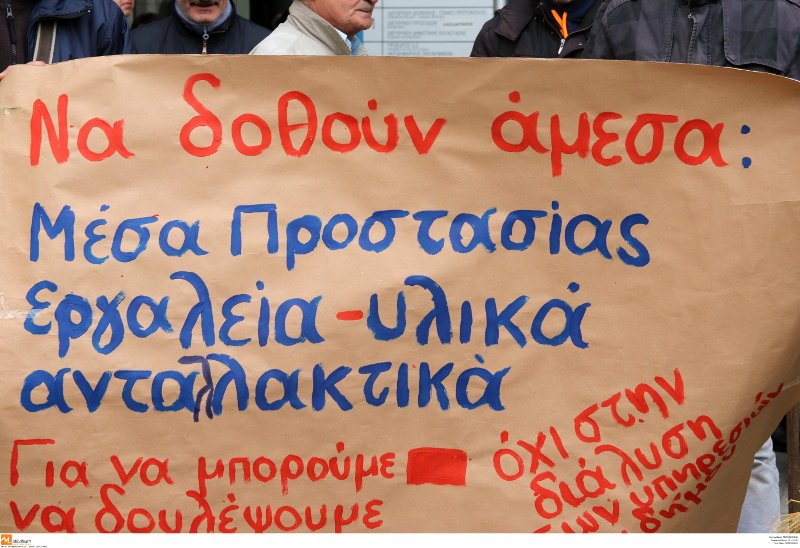 Να δοθούν άμεσα:
Μέσα Προστασίας
εργαλεία - υλικά
ανταλλακτικά
Για να μπορούμε
να δουλέψουμε
όχι στην
διάλυση
των υπηρεσιών